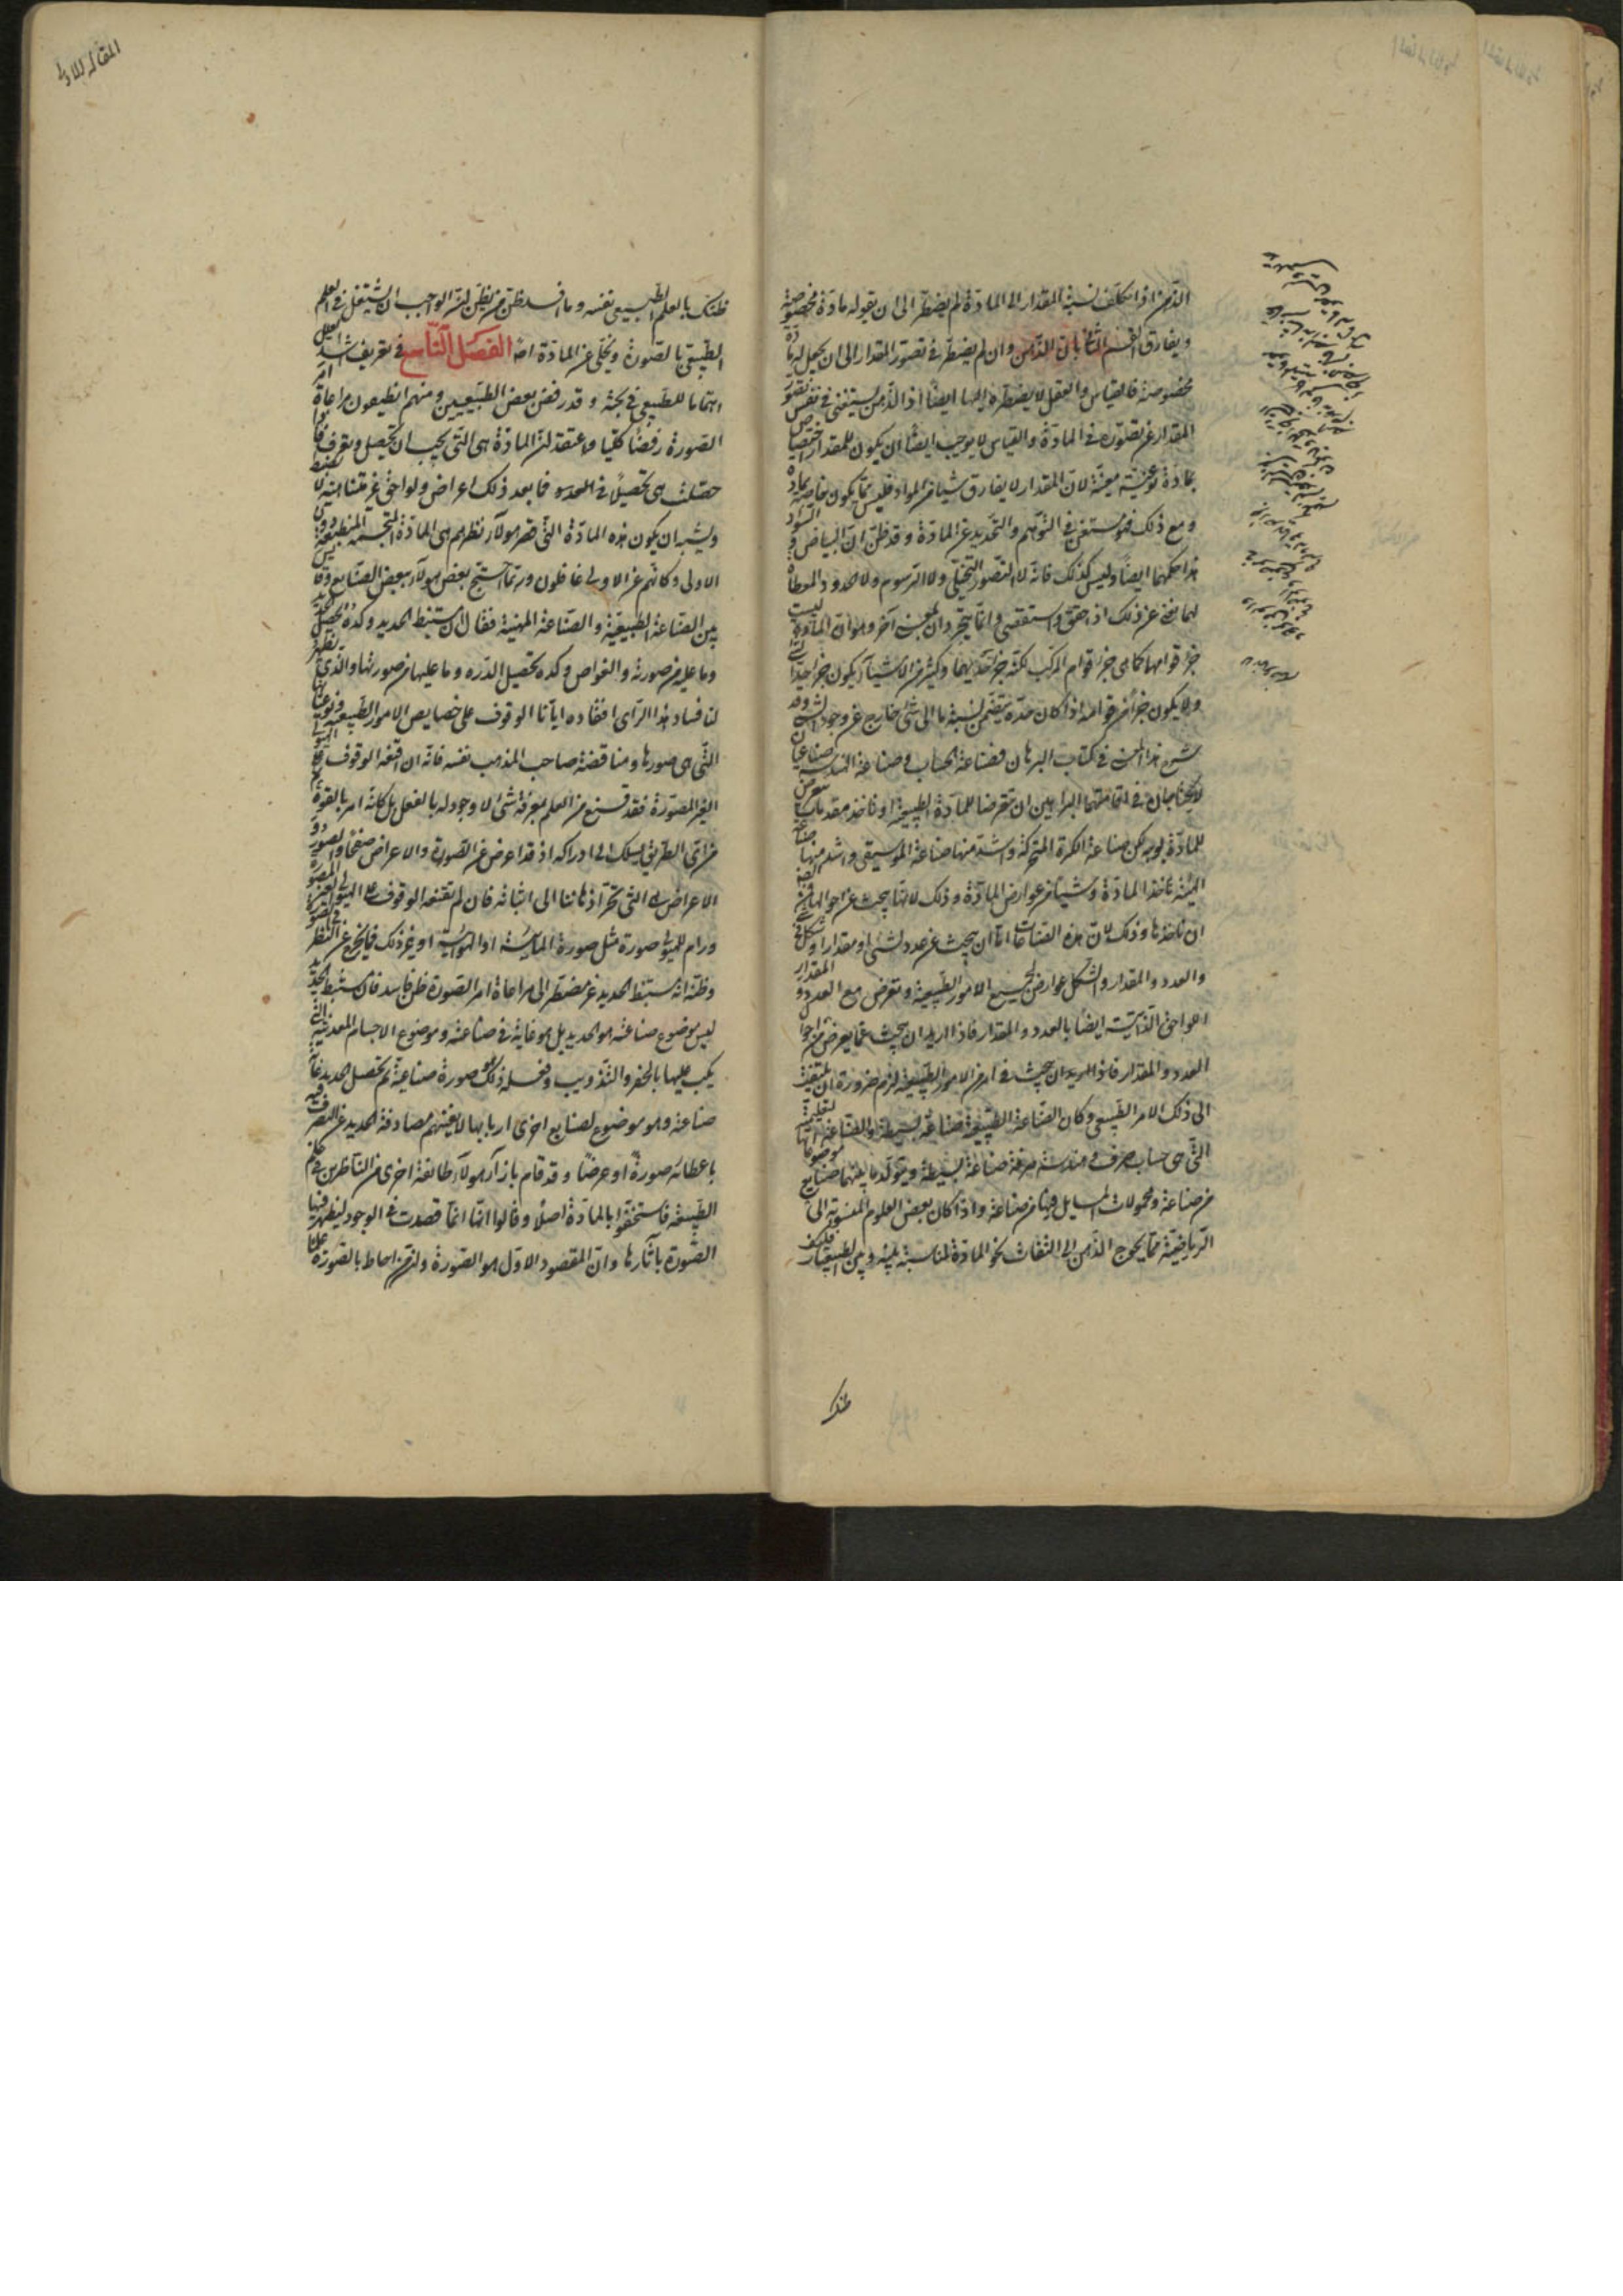 الذهن اذا تكلف نسبة المقدار الى المادة لم يضطر الى ان يقوله مادة مخصوصة
ويفارق القسم الثانى بان الذهن وان لم يضطر فى تصور المقدار الى ان يجعل له مادة
مخصوصة فالقياس والعقل لا يضطره اليها ايضا اذ الذهن يستغنى فى نفس تصور
المقدار عن تصوره فى المادة والقياس لا يوجب ايضا ان يكون للمقدار اختصاص
بمادة نوعية معينة لان المقدار لا يفارق شيئا من المواد فليس مما يكون خاصا بمادة
ومع ذلك فهو مستغن فى التوهم والتحديد عن المادة وقد ظن ان البياض والسواد
هذا حكمهما ايضا وليس كذلك فانه لا التصور التخيلى ولا الرسوم ولا الحدود المعطاة
لهما تغنى عن ذلك اذا حقق واستقصى وانما يتجردان لمعنى آخر وهو ان المادة ليست
جزء قوامها كما هى جزء قوام المركب لكنه جزء تحديهما وكثير من الاشياء يكون جزء احد
ولا يكون جزءا من قوامه اذا كان حده يتضمن نسبة ما الى شئ خارج عن وجود الشئ وقد
شرح هذا المعنى فى كتاب البرهان فصناعة الحساب وصناعة الهندسة صناعتان
لا يحتاجان فى اقامتهما البراهين ان تتعرضا للمادة الطبيعية او تاخذ مقدمات تتعرض
للمادة بوجه لكن صناعة الكرة المتحركة واشد منها صناعة الموسيقى واشد منها صناعة
الهيئة تاخذ المادة وشيئا من عوارض المادة وذلك لانها تبحث عن احوالها فمن الضرورة
ان تاخذها وذلك لان هذه الصناعات اما ان تبحث عن عدد لشئ او مقدار او شكل فى شئ
والعدد والمقدار والشكل عوارض لجميع الامور الطبيعية وتعرض مع العدد والمقدار
اللواحق الذاتية ايضا بالعدد والمقدار فاذا اريد ان يبحث عما يعرض من احوال
العدد والمقدار فاذا اريد ان يبحث فى امر من الامور الطبيعية لزم ضرورة ان يلتفت
الى ذلك الامر الطبيعى وكان الصناعة الطبيعية صناعة بسيطة والصناعة التعليمية
التى هى حساب صرف وهندسة صرفة صناعة بسيطة ويتولد ما بينهما صنايع موضوعاتها
من صناعة ومحمولات المسايل فيها من صناعة واذا كان بعض العلوم المنسوبة الى
الرياضية مما يحوج الذهن الى التفات نحو المادة لمناسبة بينه وبين الطبيعيات فكيف
ظنك
المقاله الاولى
ظنك بالعلم الطبيعى نفسه وما افسد ظن من يظن ان الواجب ان يشتغل فى العلم
الطبيعى بالصورة ويخلى عن المادة اصلا الفصل التاسع فى تعريف اشد العلل
اهتماما للطبيعى فى بحثه وقد رفض بعض الطبيعيين ومنهم انطيفون مراعاة امر
الصورة رفضا كليا واعتقد ان المادة هى التى يجب ان تحصل وتعرف فاذا
حصلت هى تحصيلا فما بعد ذلك اعراض ولواحق غير متناهية لا تضبط
ويشبه ان يكون هذه المادة التى قصر هولاء نظرهم هى المادة المتجسمة المنطبعة دون
الاولى وكانهم عن الاولى غافلون وربما احتج بعض هولاء ببعض الصنايع وقايس
بين الصناعة الطبيعية والصناعة المهنية فقال ان مستنبط الحديد وكده تحصيل الحديد
وما عليه من صورته والغواص وكده تحصيل الدرة وما عليها من صورتها والذى يظهر
لنا فساد هذا الراى افقاده ايانا الوقوف على خصايص الامور الطبيعية ونوعياتها
التى هى صورها ومناقضة صاحب المذهب نفسه فانه ان اقنعه الوقوف على الهيولى
الغير المصورة فقد قنع من العلم بمعرفة شئ لا وجود له بالفعل بل كانه امر بالقوة ثم
من اى الطريق يسلك الى ادراكه اذ قد اعرض عن الصورة والاعراض صفحا والصور و
الاعراض هى التى تجر اذهاننا الى اثباته فان لم يقنعه الوقوف على الهيولى الغير المصورة
ورام للهيولى صورة مثل صورة المائية او الهوائية او غير ذلك فما خرج عن النظر فى الصورة
وظنه ان مستنبط الحديد غير مضطر الى مراعاة امر الصورة ظن فاسد فان مستنبط الحديد
ليس موضوع صناعته هو الحديد بل هو غاية فى صناعته وموضوع الاجسام المعدنية التى
يكب عليها بالحفر والتذويب وفعله ذلك هو صورة صناعية ثم تحصيل الحديد غاية
صناعته وهو موضوع لصنايع اخرى اربابها لا يعنيهم مصادفة الحديد عن التصرف فيه
باعطائه صورة او عرضا وقد قام بازاء هولاء طائفة اخرى من الناظرين فى علم
الطبيعة فاستخفوا بالمادة اصلا وقالوا انها انما قصدت فى الوجود ليظهر فيها
الصورة بآثارها وان المقصود الاول هو الصورة وان من احاط بالصورة علما